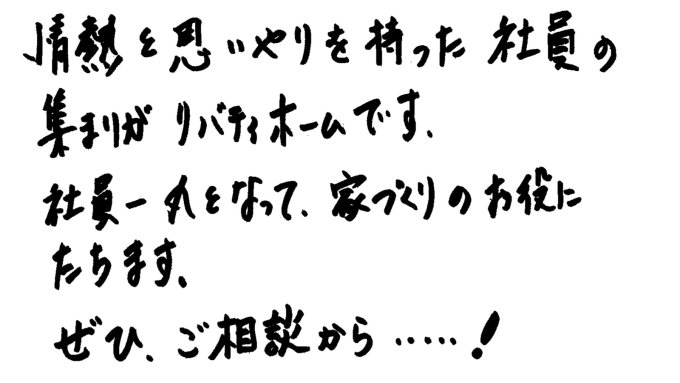 情熱と思いやりを持った 社員の
集まりが リバティホームです.
社員一丸となって、家づくりのお役に
たちます。
ぜひ、ご相談から……!